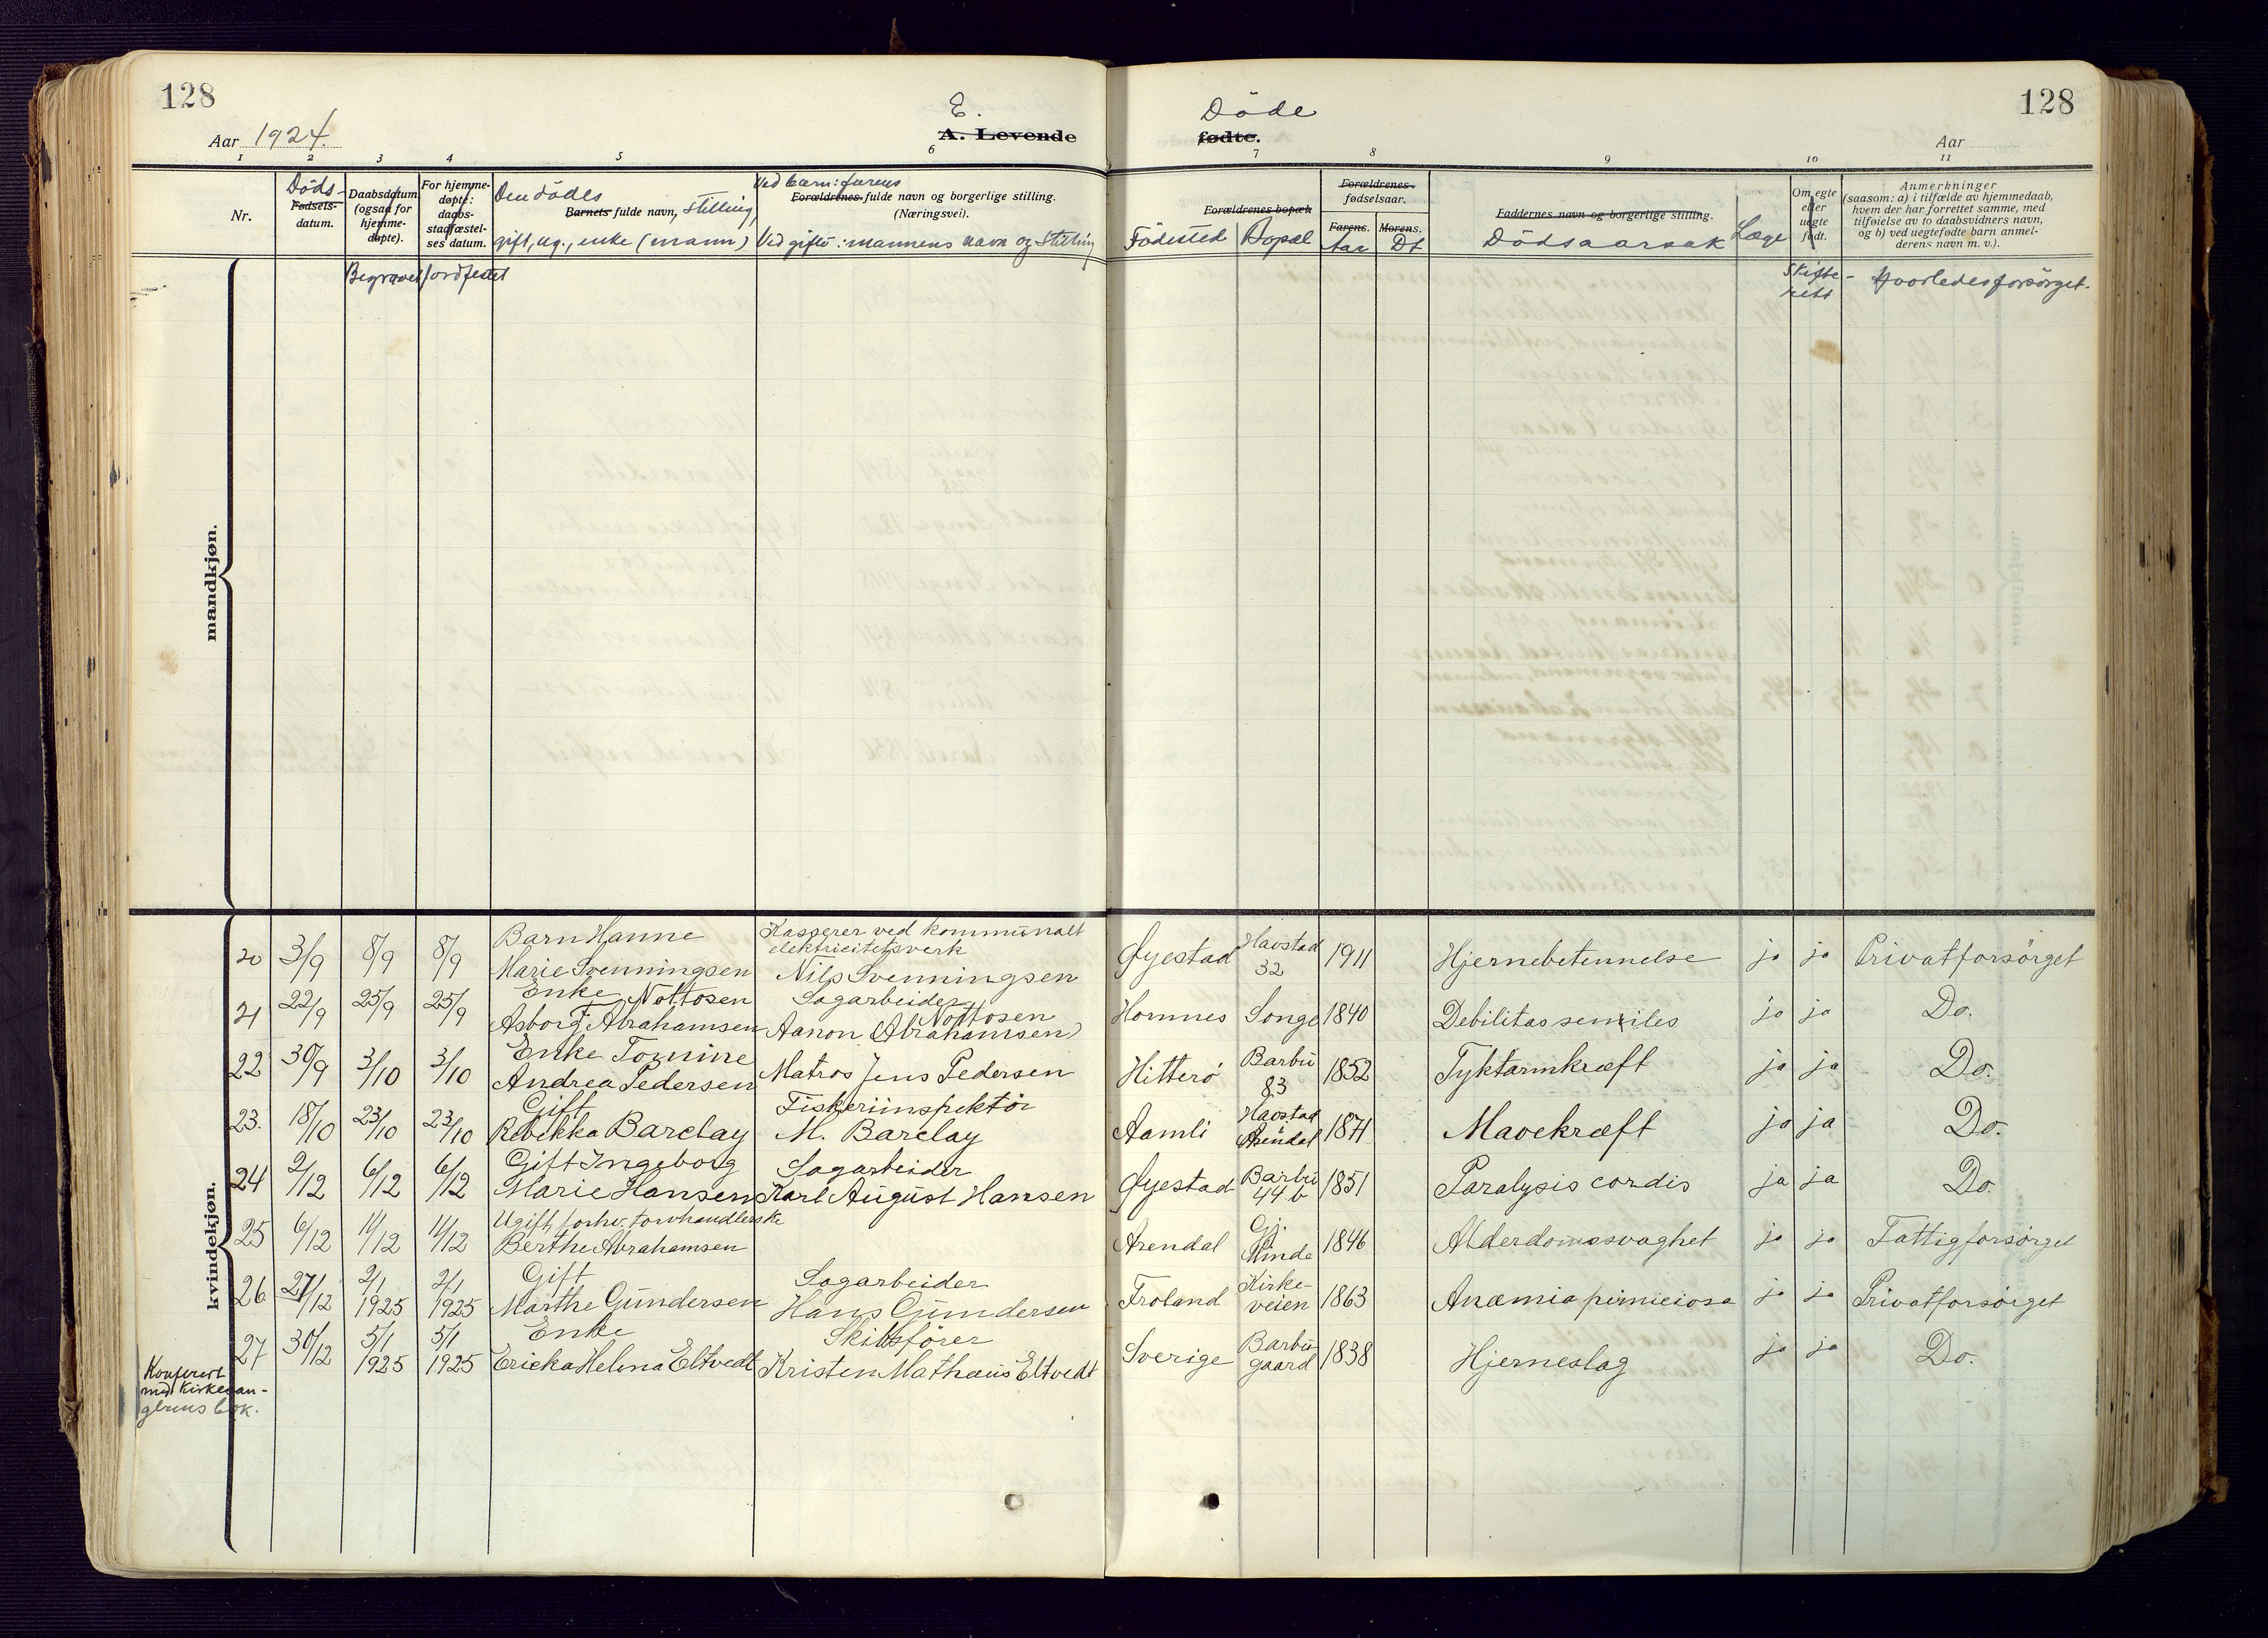 128
128
Aar 1924.
E. Døde
A. Levende fødte.
Aar
1 2 3 4 5 6 7 8 9 10 11
Nr.
Døds-
Fødsels-
datum.
Daabsdatum
(ogsaa for
hjemme-
døpte).
For hjemme-
døpte:
daabs-
stadfæstel-
ses datum.
Den dødes
Barnets fulde navn, stilling,
gift, ug., enke (mann)
Ved barn: farens
Forældrenes fulde navn og borgerlige stilling.
(Næringsvei).
Ved gifte: mannens navn og stilling
Forældrenes bopæl
Fødested Bopæl
Forældrenes
fødselsaar.
Farens. Morens.
Aar Dt
Faddernes navn og borgerlige stilling.
Dødsaarsak Læge
Om egte
eller
uegte
født.
Anmerkninger
(saasom: a) i tilfælde av hjemmedaab,
hvem der har forrettet samme, med
tilføielse av to daabsvidners navn,
og b) ved uegtefødte barn anmel-
derens navn m. v.).
Begravet jordfestet
Skifte-
rett
Hvorledes forsørget.
mandkjøn.
kvindekjøn.
20 3/9 8/9 8/9 Barn Hanne Marie Svenningsen Kasserer ved kommunalt elektricitetsverk Nils Svenningsen Øyestad Havstad 32 1911 Hjernebetennelse ja ja Privatforsørget
21 22/9 25/9 25/9 Enke Nottosen Asborg F. Abrahamsen Sagarbeider Nottosen Aanon (Abrahamsen) Hornnes Songe 1840 Debilitas seniles ja ja Do.
22 30/9 3/10 3/10 Enke Tomine Andrea Pedersen Matros Jens Pedersen Hitterö Barbu 83 1852 Tyktarmkræft ja ja Do.
23. 18/10 23/10 23/10 Gift Rebekka Barclay Fiskeriinspektör M. Barclay Aamli Havstad Arendal 1871 Mavekræft ja ja Do.
24 2/12 6/12 6/12 Gift Ingeborg Marie Hansen Sagarbeider Karl August Hansen Øyestad Barbu 44 b 1851 Paralysis cordis ja ja Do.
25 6/12 11/12 11/12 Ugift, forhv. torvhandlerske Berthe Abrahamsen Arendal Gj. Minde 1846 Alderdomssvaghet ja ja Fattigforsørget
26 27/12 2/1 1925 2/1 1925 Gift Marthe Gundersen Sagarbeider Hans Gundersen Froland Kirke- veien 1863 Anæmia pirnieiosa ja ja Privatforsørget
27 30/12 5/1 1925 5/1 1925 Enke Ericka Helena Eltvedt Skibsfører Kristen Mathæus Eltvedt Sverige Barbu gaard 1838 Hjerneslag ja ja Do.
Konferert
med kirkesan-
gerens bok.